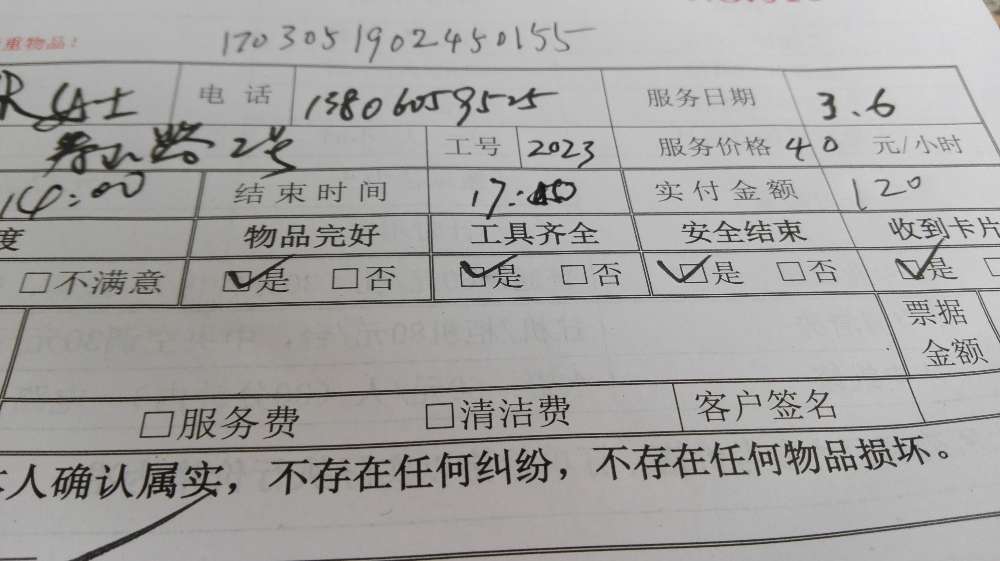 重物品!
1703051902450155
女士 电话 13806059525 服务日期 3.6
路2号 工号 2023 服务价格 40 元/小时
14:00 结束时间 17:00 实付金额 120
度 物品完好 工具齐全 安全结束 收到卡片
□不满意 ☑是 □否 ☑是 □否 ☑是 □否 ☑是
票据
金额
□服务费 □清洁费 客户签名
人确认属实，不存在任何纠纷，不存在任何物品损坏。